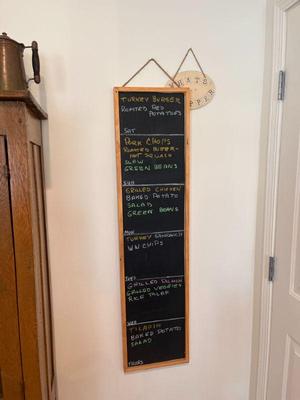 WHATS
SUPPER
TURKEY BURGER
ROASTED RED
POTATOES
SAT
PORK CHOPS
ROASTED BUTTER-
NUT SQUASH
SLAW
GREEN BEANS
SUN
GRILLED CHICKEN
BAKED POTATO
SALAD
GREEN BEANS
MON
TURKEY SANDWICH
W/ CHIPS
TUES
GRILLED SALMON
GRILLED VEGGIES
RICE
WED
TILAPIA
BAKED POTATO
SALAD
THURS